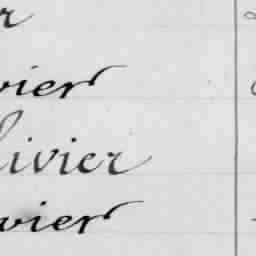 r
vier
livier
vier